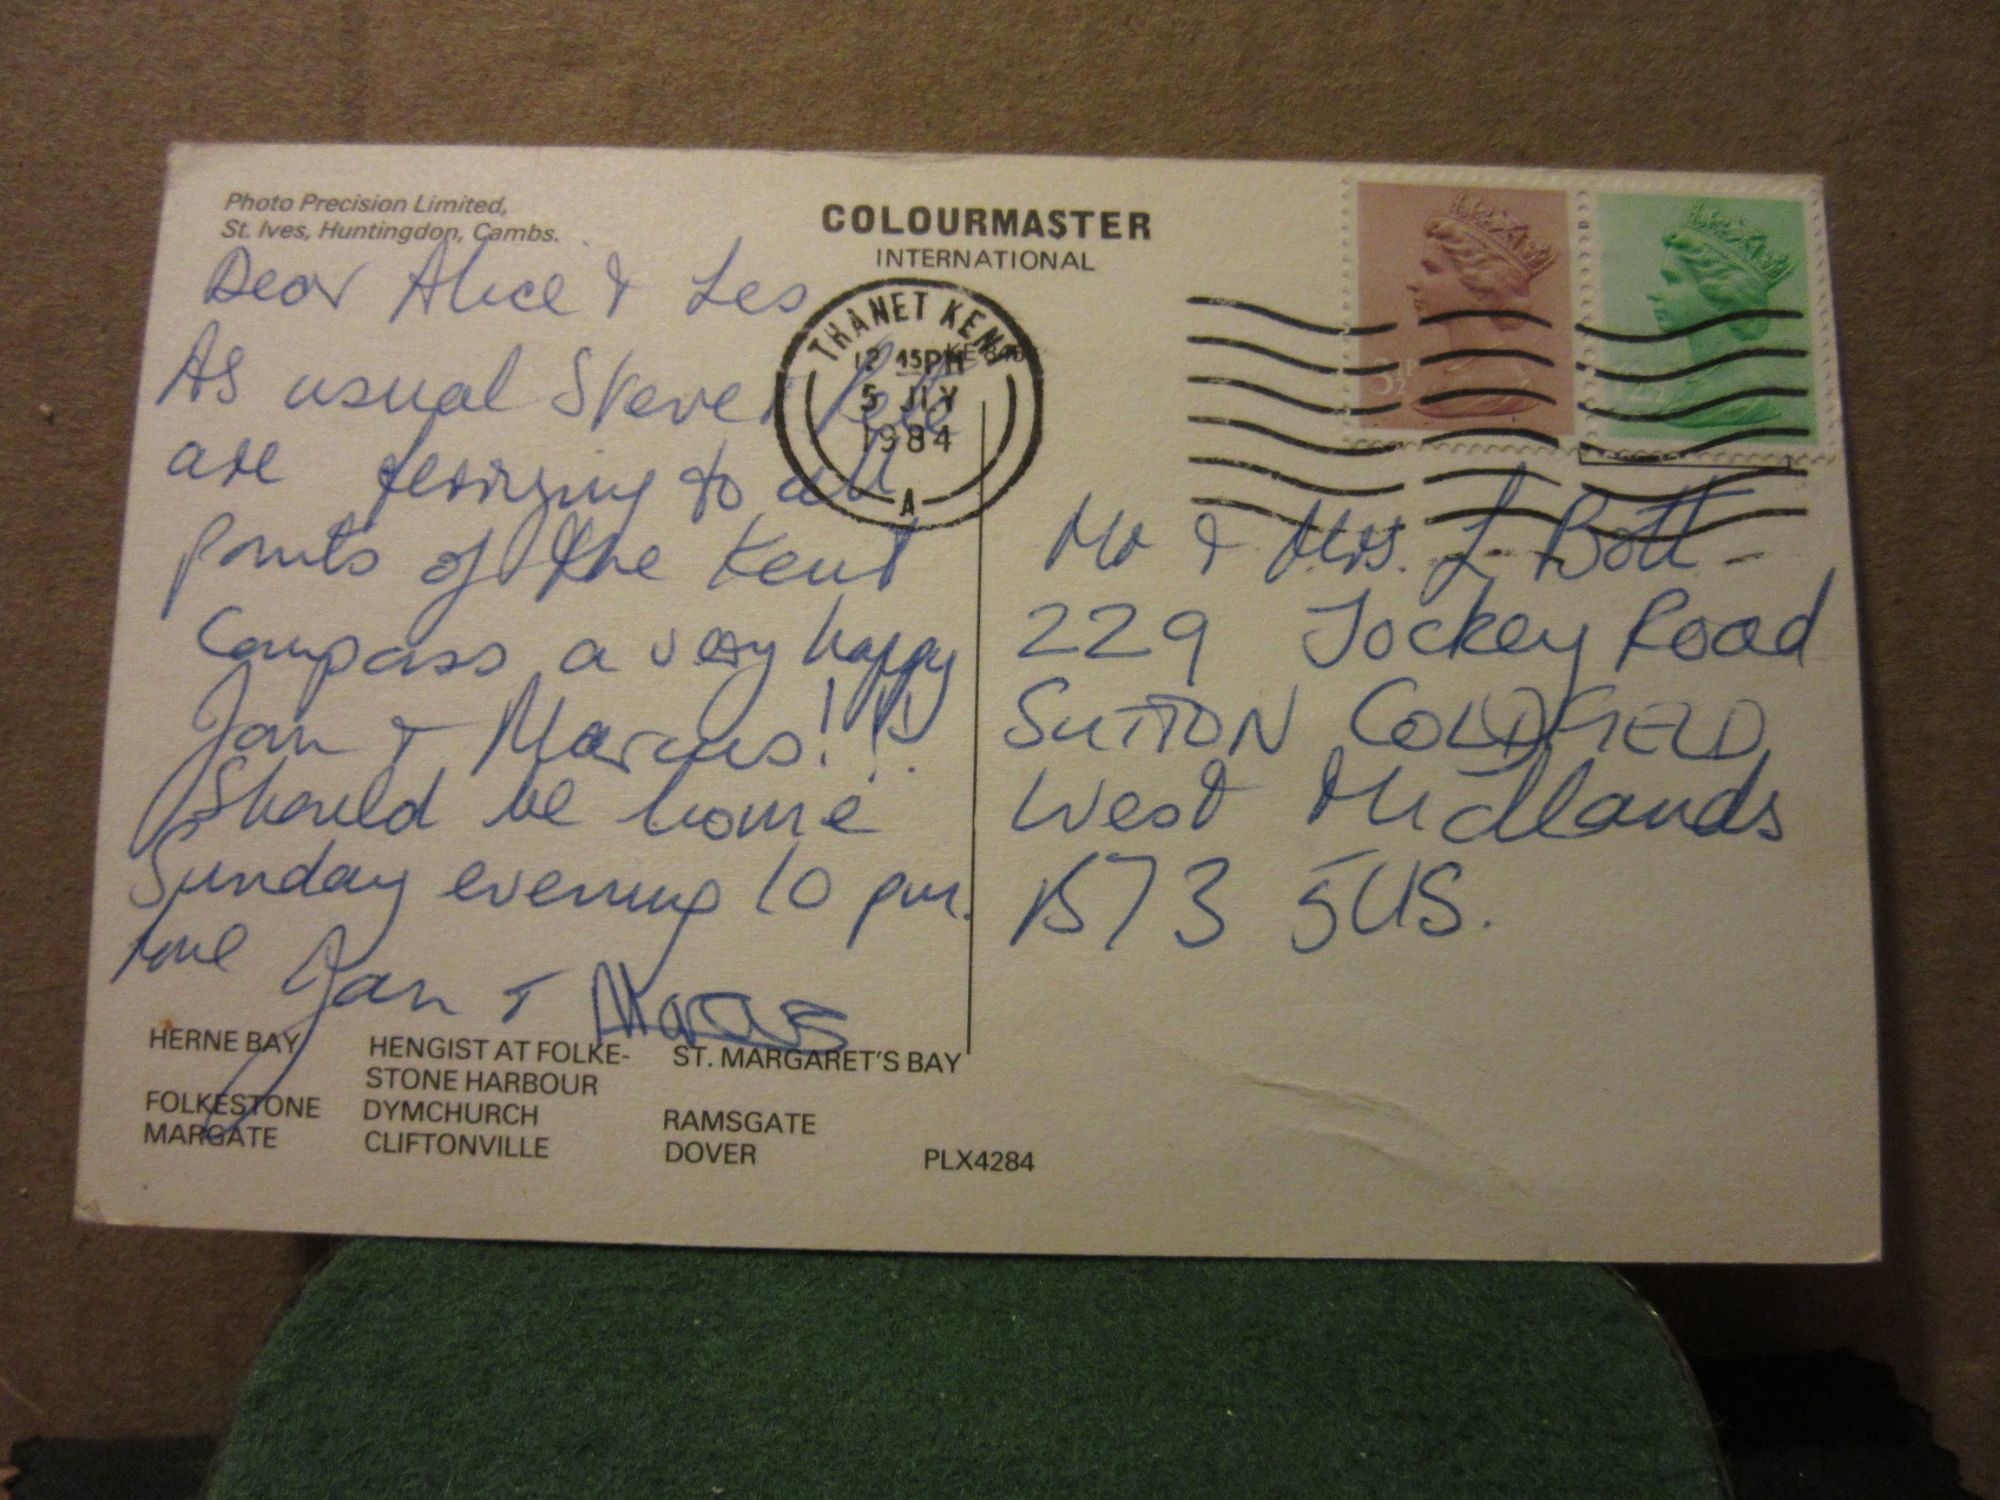 Photo Precision Limited,
St. Ives, Huntingdon, Cambs.
COLOURMASTER
INTERNATIONAL
THANET KENT
12 45PM
5 JLY
1984
A
3½P
12½
Dear Alice & Les
As usual Steve & Pete
are ferrying to all
points of the Kent
Compass a very happy
Jan & Marcus!!!
Should be home
Sunday evening 10 pm.
love Jan & Marcus
Mr & Mrs. L. Bott
229 Jockey Road
SUTTON COLDFIELD
West Midlands
B73 5US.
HERNE BAY
HENGIST AT FOLKE-
STONE HARBOUR
ST. MARGARET'S BAY
FOLKESTONE DYMCHURCH RAMSGATE
MARGATE CLIFTONVILLE DOVER
PLX4284